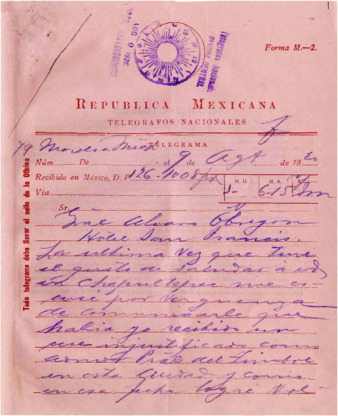 1
Forma M.—2.
REPUBLICA MEXICANA
TELEGRAFOS NACIONALES
TELEGRAMA
Núm. De Morelia Mich 9 Agt de 1920
Recibido en MÉXICO, D. 126-1008
H. D. H. R.
Vía 6-15
Sr.
Gral Alvaro Obregon
Hotel San Francis.
La ultima Vez que tuve
el gusto de saludar a ud
en Chapultepec me es-
cusé por verguenza
de comunicarle que
habia yo recibido un
cese injustificado como
Admor Pral del Timbre
en esta Ciudad y como
en esa fecha logré
Todo telegrama debe llevar el sello de la Oficina